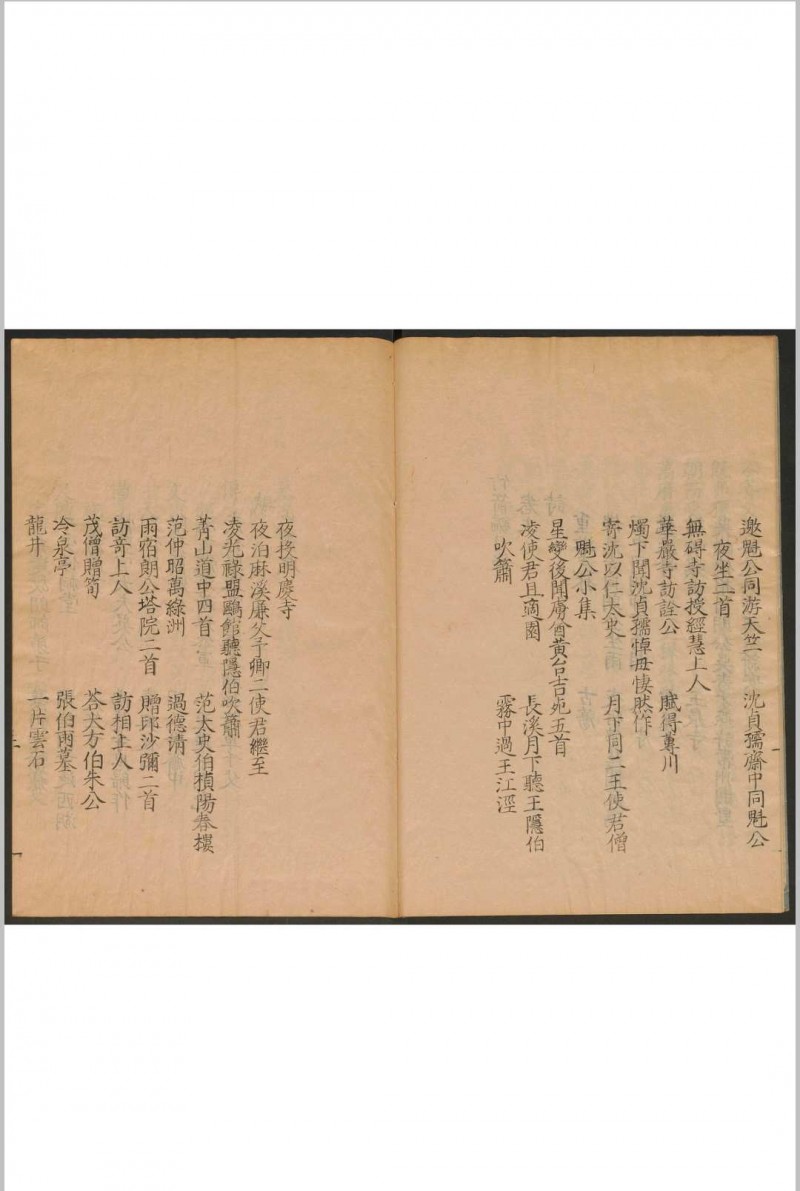 邀魁公同游天竺　沈貞孺齋中同魁公
夜坐二首
無碍寺訪授經慧上人
華嚴寺訪詮公　賦得蓴川
燭下聞沈貞孺悼毋悽然作
寄沈以仁太史　月下同二王使君僧
魁公小集
星變後聞虜酋黄台吉死五首
凌使君且適園　長溪月下聽王隱伯
吹簫　霧中過王江涇
夜投明慶寺
夜泊麻溪廉父予卿二使君繼至
凌光禄盟鷗館聽隱伯吹簫
菁山道中四首　范太史伯楨陽春樓
范仲昭萬綠洲　過德清
雨宿朗公塔院二首　贈邱沙彌二首
訪竒上人　訪相上人
茂僧贈筍　荅大方伯朱公
冷泉亭　張伯雨墓
龍井　一片雲石